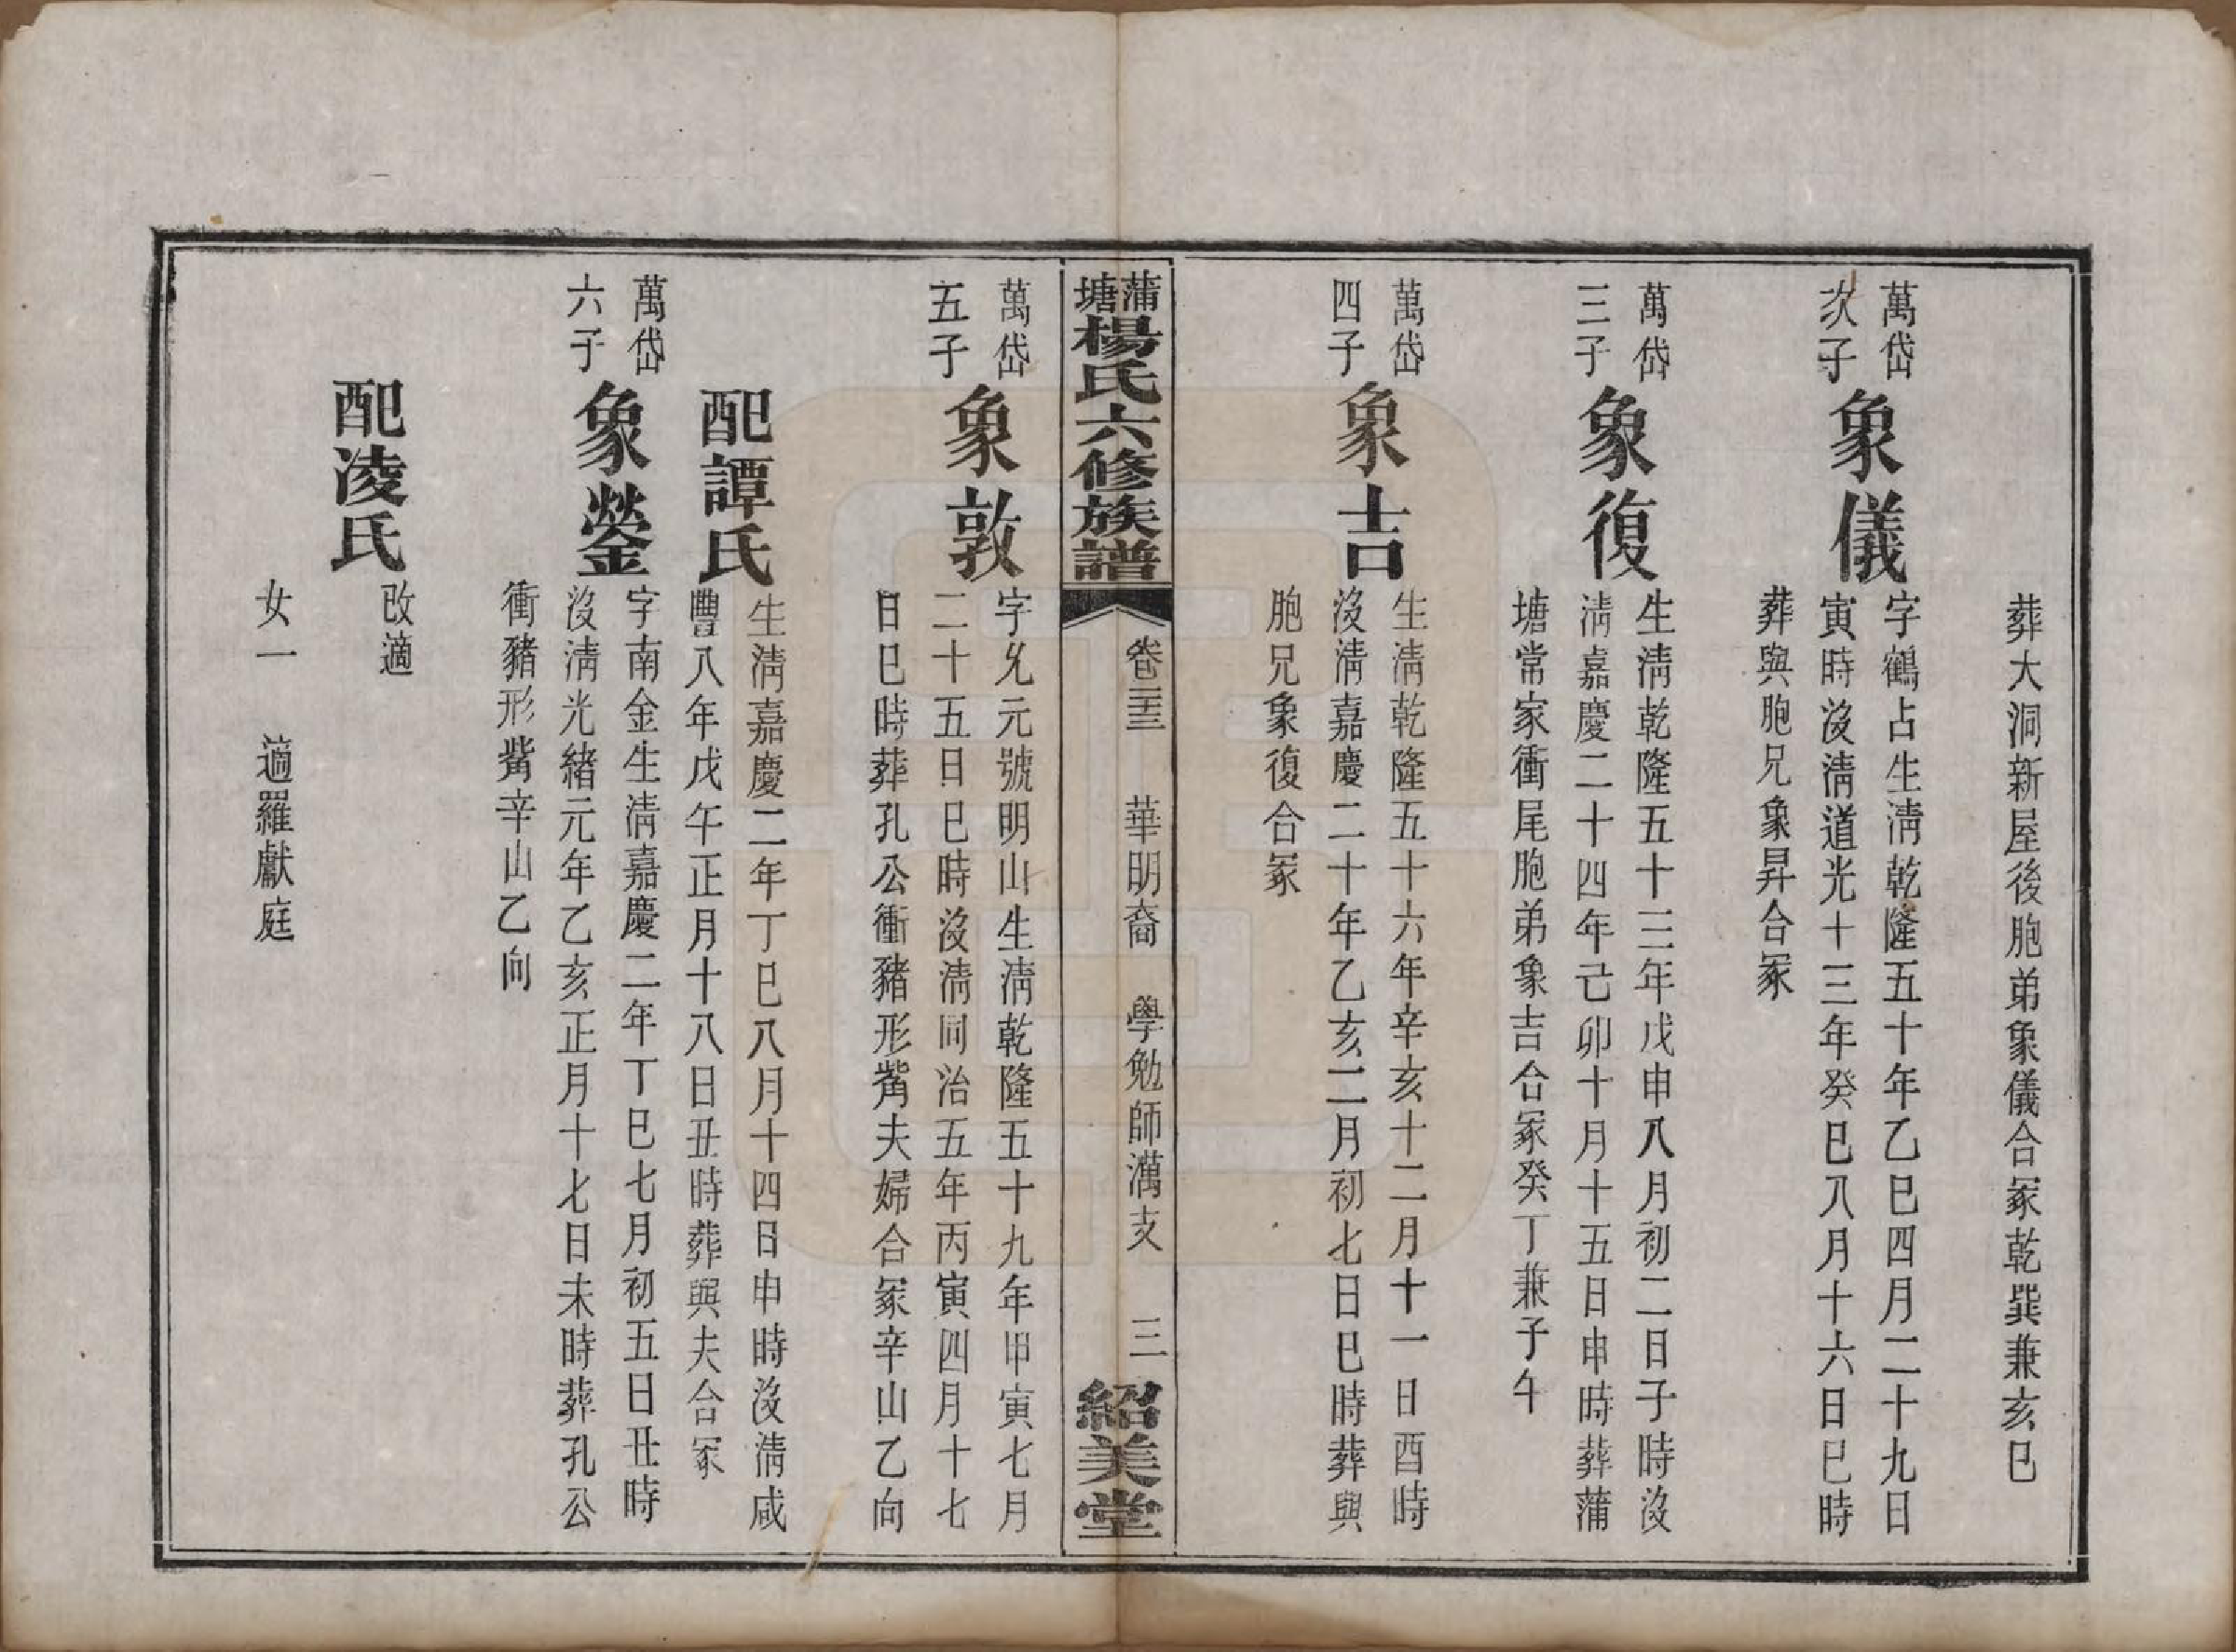 葬大洞新屋後胞弟象儀合冢乾巽兼亥巳
萬岱
次子
象儀
字鶴占生淸乾隆五十年乙巳四月二十九日
寅時沒淸道光十三年癸巳八月十六日巳時
葬與胞兄象昇合冢
萬岱
三子
象復
生淸乾隆五十三年戊申八月初二日子時沒
淸嘉慶二十四年己卯十月十五日申時葬蒲
塘常家衝尾胞弟象吉合冢癸丁兼子午
萬岱
四子
象吉
生淸乾隆五十六年辛亥十二月十一日酉時
沒淸嘉慶二十年乙亥二月初七日巳時葬與
胞兄象復合冢
蒲塘楊氏六修族譜
卷三十三
華明裔
學勉師滿支
三
紹美堂
萬岱
五子
象敦
字允元號明山生淸乾隆五十九年甲寅七月
二十五日巳時沒淸同治五年丙寅四月十七
日巳時葬孔公衝豬形觜夫婦合冢辛山乙向
配譚氏
生淸嘉慶二年丁巳八月十四日申時沒淸咸
豐八年戊午正月十八日丑時葬與夫合冢
萬岱
六子
象鎣
字南金生淸嘉慶二年丁巳七月初五日丑時
沒淸光緖元年乙亥正月十七日未時葬孔公
衝豬形觜辛山乙向
配淩氏
改適
女一 適羅獻庭